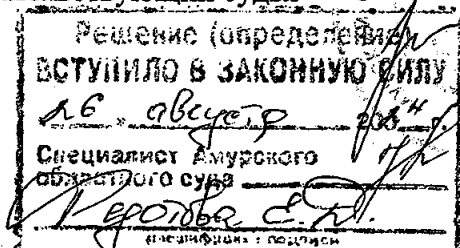 Решение (определение)
ВСТУПИЛО В ЗАКОННУЮ СИЛУ
26 августа 200 г.
Специалист Амурского
областного суда
Федотова Е.
расшифровка подписи